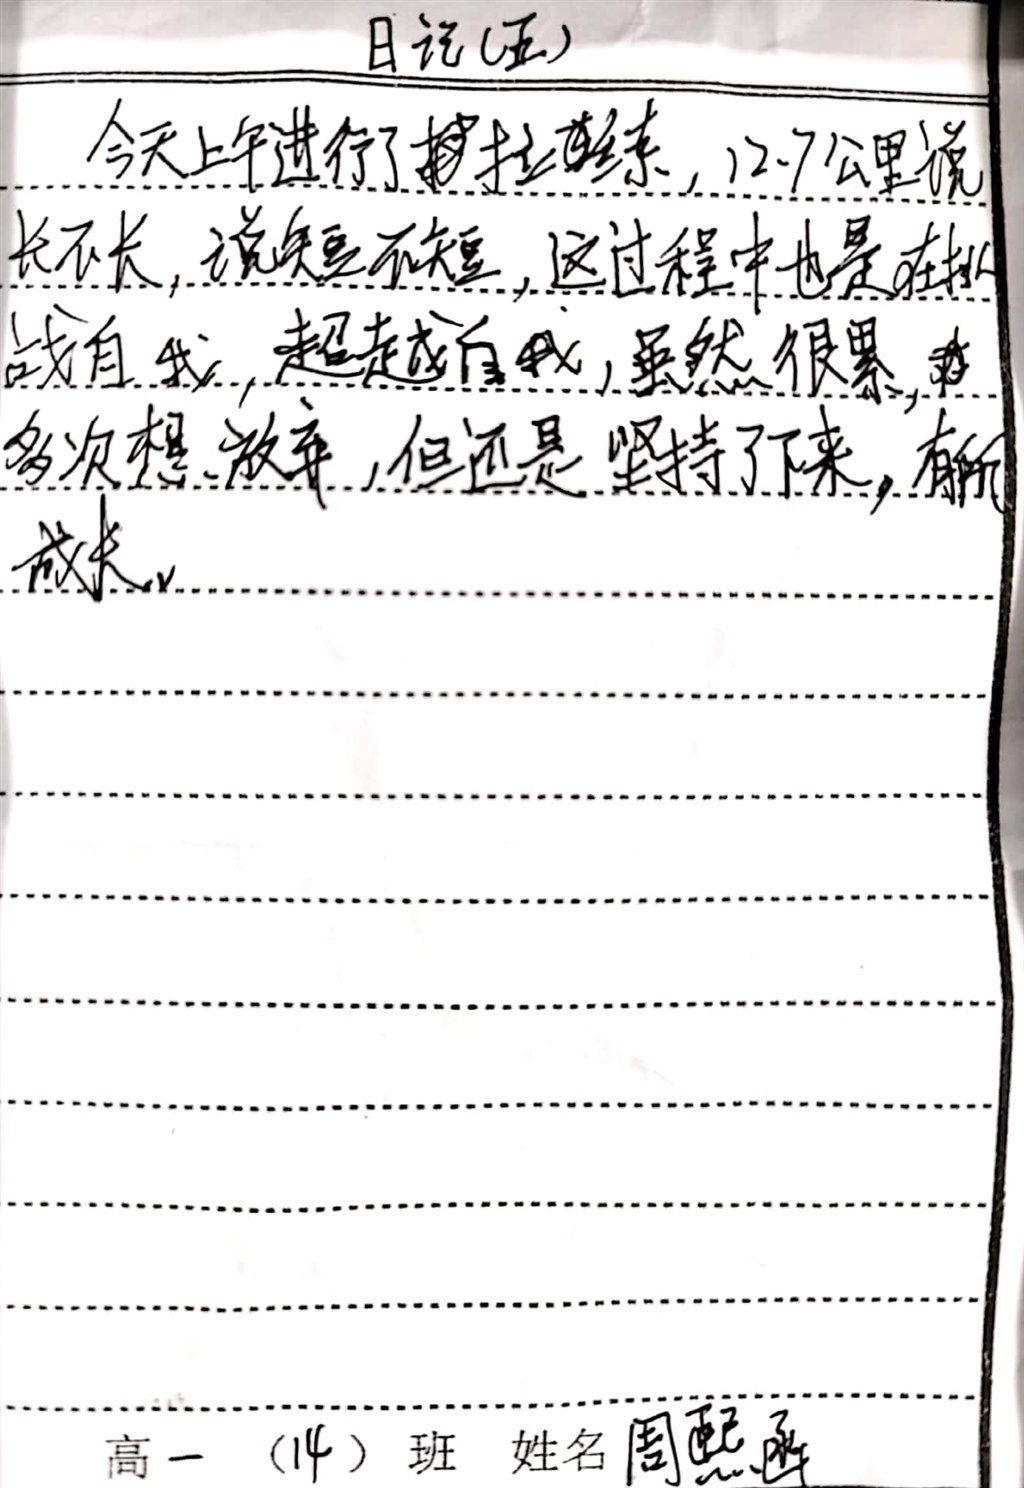 日记(五)
今天上午进行了拉练,12.7公里说
长不长,说短不短,这过程中也是在挑
战自我,超越自我,虽然很累,
多次想放弃,但还是坚持了下来,有所
成长。
高一(14)班 姓名 周熙函